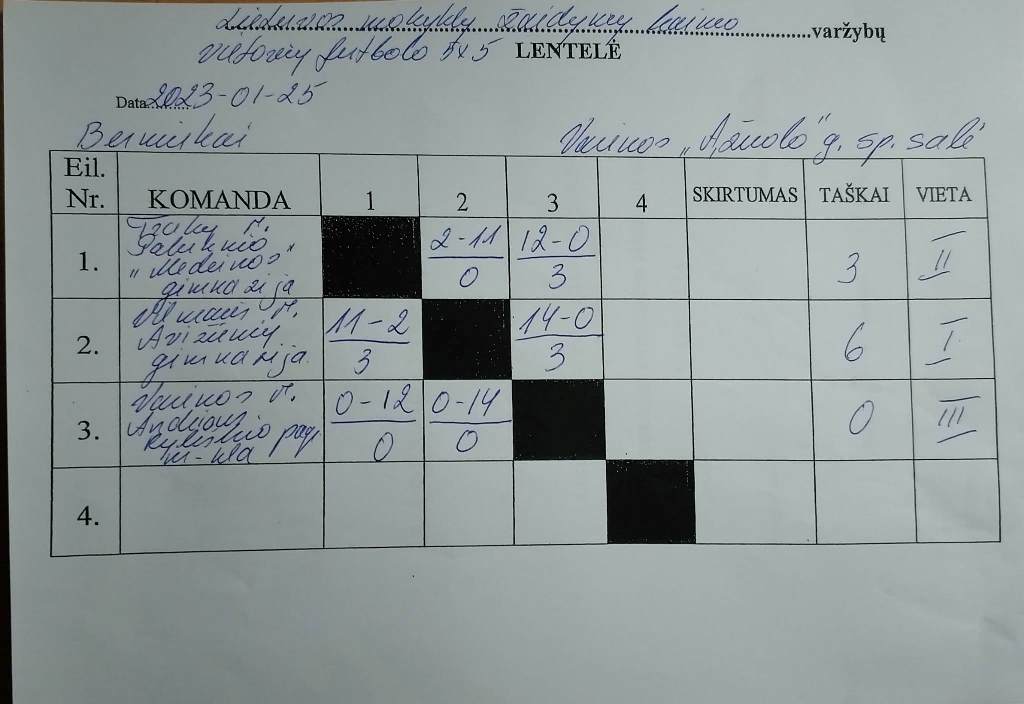 Lietuvos mokyklų žaidynių kaimo varžybų
vietovių futbolo 5x5 LENTELĖ
Data 2023-01-25
Berniukai Varėnos „Ąžuolo“ g. sp. salė
Eil. Nr. KOMANDA 1 2 3 4 SKIRTUMAS TAŠKAI VIETA
1. Trakų r. 2-11 12-0
Paluknio
„Medeinos“ 0 3 3 II
gimnazija
2. Vilniaus r. 11-2 14-0
Avižienių 6 I
gimnazija 3 3
3. Varėnos r. 0-12 0-14 0 III
Andriaus
Ryliškio pagr. 0 0
m-kla
4.